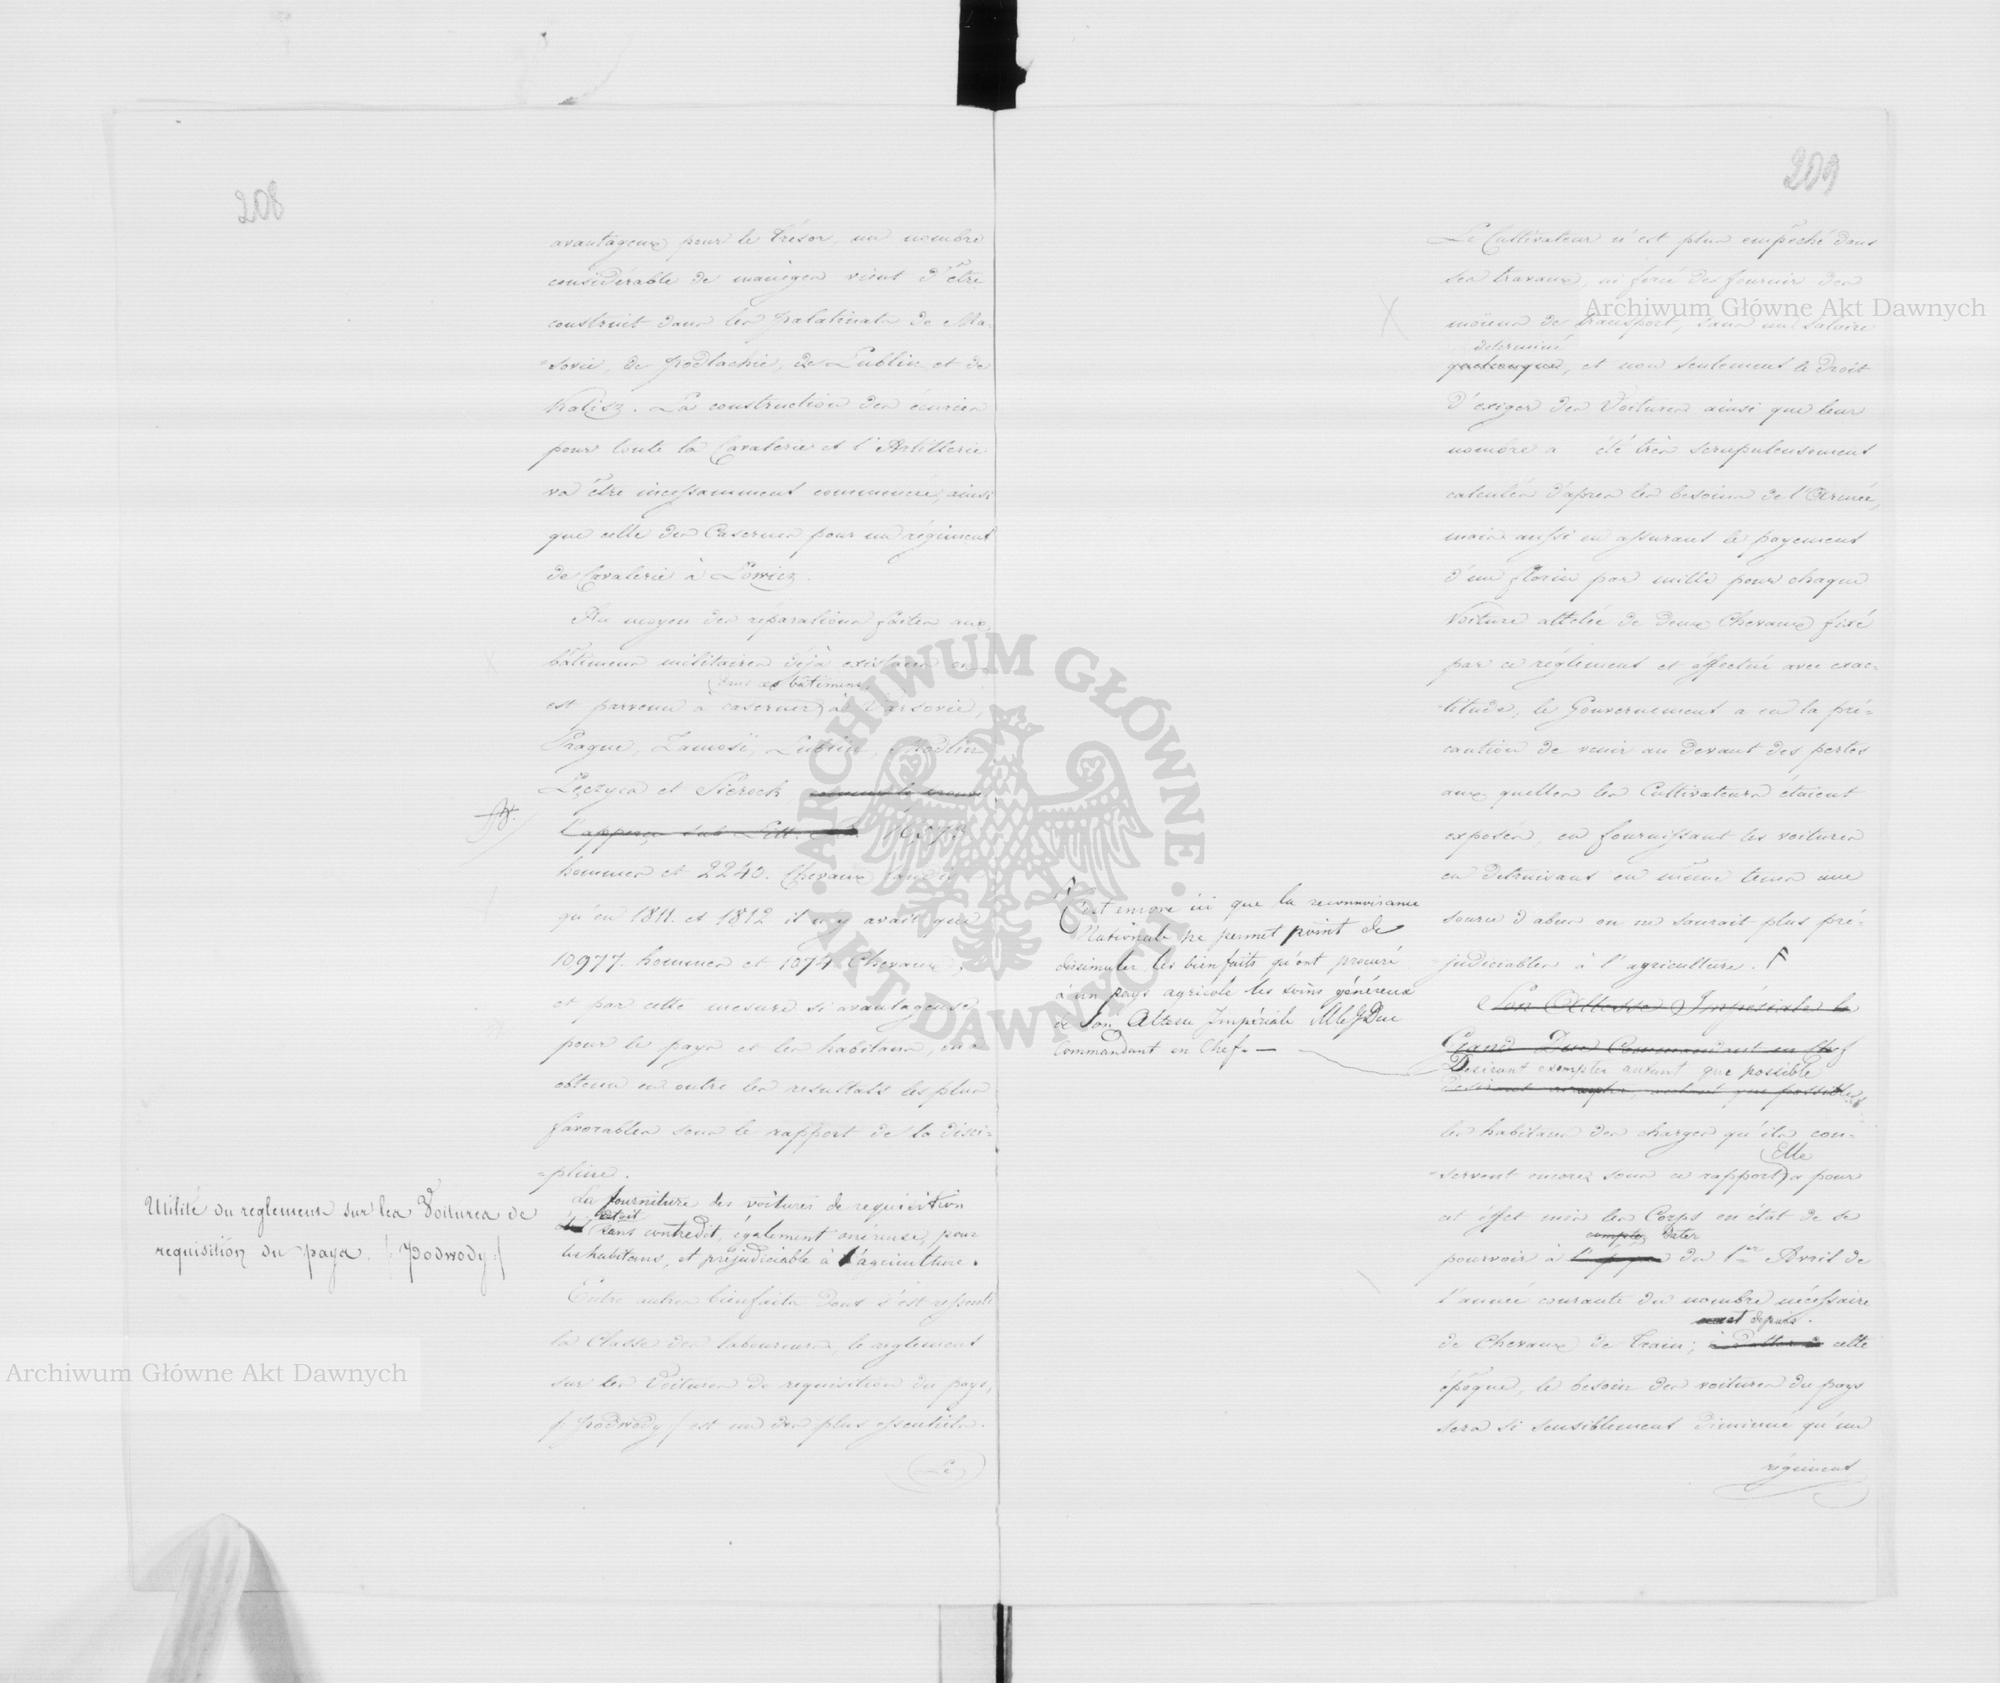 208
avantageux pour le trésor, un nombre
considérable de manèges vient d'être
construit dans les Palatinats de Ma-
=sovie, de Podlachie, de Lublin et de
Kalisz. La construction des écuries
pour toute la Cavalerie et l'Artillerie
va être incessamment commencée, ainsi
que celle des Casernes pour un régiment
de Cavalerie à Lowicz.
Au moyen des réparations faites aux
bâtimens militaires déjà existans on
dans ces bâtimens
est parvenu à caserner à Varsovie,
Prague, Zamość, Lublin, Modlin
Łęczyca et Sierock
l'apperçu sub Litt.
hommes et 2240. Chevaux, tandis
qu'en 1811. et 1812 il n'y avait que
10,977. hommes et 1074 Chevaux;
et par cette mesure si avantageuse
pour le pays et les habitans, on a
obtenu en outre les resultats les plus
favorables sous le rapport de la disci-
=pline.
Utilité du reglement sur les Voitures de
requisition du pays. /: Podwody :/
La fourniture des voitures de requisition
étoit
sans contredit, également onéreuse, pour
les habitans, et préjudiciable à l'agriculture.
Entre autres bienfaits dont s'est ressenti
la Classe des laboureurs, le reglement
sur les Voitures de requisition du pays,
/: Podwody :/ est un des plus essentiels.
Le
209
Le Cultivateur n'est plus empêché dans
ses travaux, ni forcé de fournir des
moiens de transport, sans un salaire
determiné
quelconque, et non seulement le droit
d'exiger des Voitures ainsi que leur
nombre a été très scrupuleusement
calculés d'après les besoins de l'Armée,
mais aussi en assurant le payement
d'un florin par mille pour chaque
Voiture attelée de deux Chevaux fixé
par ce réglement et éffectué avec exac-
=titude, le Gouvernement a eu la pré-
caution de venir au devant des pertes
aux quelles les Cultivateurs étaient
exposés, en fournissant les voitures
en detruisant en même tems une
source d'abus on ne saurait plus pré-
judiciables à l'agriculture.
C'est encore ici que la reconnoisance
Nationale ne permet point de
dissimuler les bienfaits qu'ont procuré
à un pays agricole les soins généreux
de Son Altesse Impériale Mle G Duc
Commandant en Chef. —
Son Altesse Impériale le
Grand Duc Commandant en Chef
Desirant exempter autant que possible
desirant exempter, autant que possible
les habitans des charges qu'ils con-
Elle
=servent encore sous ce rapport, a pour
cet éffet mis les Corps en état de se
compter dater
pourvoir à l'époque du 1er Avril de
l'année courante du nombre nécessaire
et depuis.
de Chevaux de train; à dater de cette
époque, le besoin des voitures du pays
sera si sensiblement diminué qu'un
régiment
Archiwum Główne Akt Dawnych
Archiwum Główne Akt Dawnych
ARCHIWUM GŁÓWNE
AKT DAWNYCH